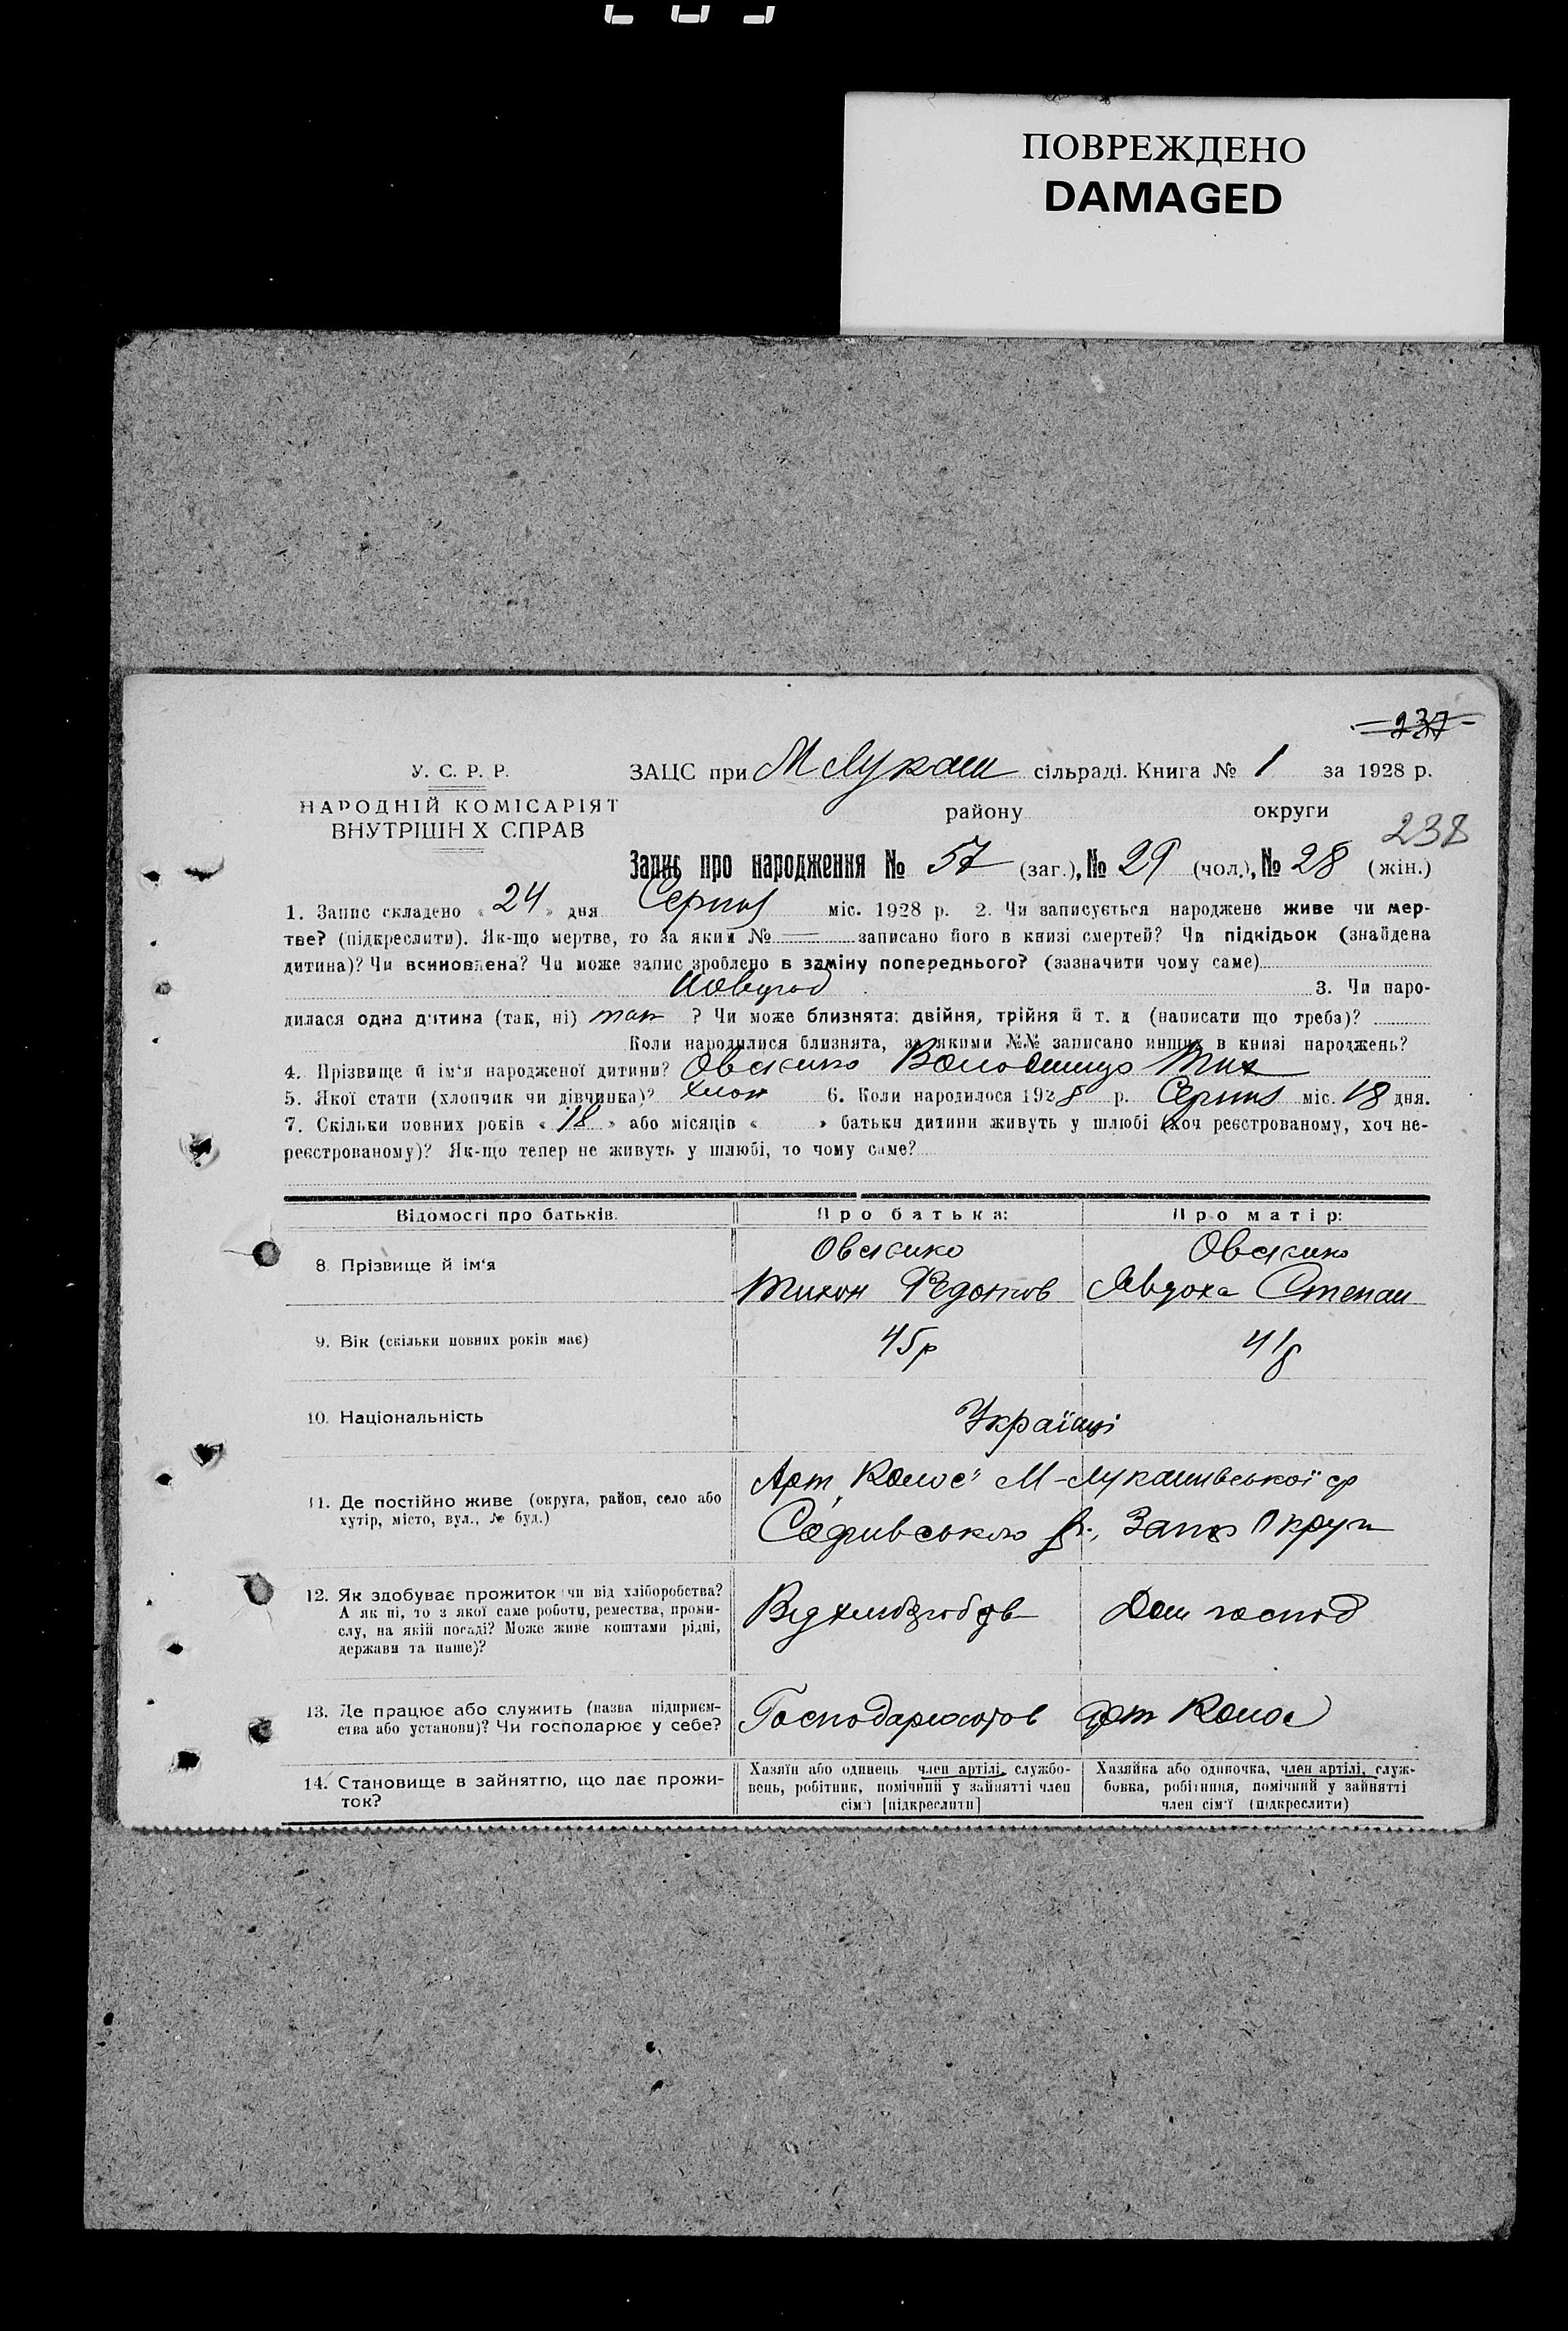 ПОВРЕЖДЕНО
DAMAGED
237
У. С. Р. Р.
НАРОДНІЙ КОМІСАРІЯТ
ВНУТРІШН Х СПРАВ
ЗАЦС при М Лукаш сільраді. Книга № 1 за 1928 р.
району округи
238
Запис про народження № 57 (заг.), № 29 (чол.), № 28 (жін.)
1. Запис складено « 24 » дня Серпня міс. 1928 р. 2. Чи записується народжене живе чи мер-
тве? (підкреслити). Як-що мертве, то за яким № — записано його в книзі смертей? Чи підкідьок (знайдена
дитина)? Чи всиновлена? Чи може запис зроблено в заміну попереднього? (зазначити чому саме)
3. Чи наро-
дилася одна дитина (так, ні) так ? Чи може близнята: двійня, трійня й т. д (написати що треба)?
Коли народилися близнята, за якими №№ записано инших в книзі народжень?
4. Прізвище й ім'я народженої дитини? Овсієнко Володимир Тих
5. Якої стати (хлопчик чи дівчинка)? хлоп 6. Коли народилося 1928 р. Серпня міс. 18 дня.
7. Скільки повних років « 18 » або місяців « » батьки дитини живуть у шлюбі (хоч реєстрованому, хоч не-
реєстрованому)? Як-що тепер не живуть у шлюбі, то чому саме?
Відомості про батьків. Про батька: Про матір:
8. Прізвище й ім'я
Овсієнко Овсієнко
Тихон Федотов Явдоха Степан
9. Вік (скільки повних років має) 45р 41р
10. Національність Українці
11. Де постійно живе (округа, район, село або
хутір, місто, вул., № буд.)
Арт „Колос" М-Лукашівської ср
Софіівського р., Запор Округи
12. Як здобуває прожиток чи від хліборобства?
А як ні, то з якої саме роботи, ремества, проми-
слу, на якій посаді? Може живе коштами рідні,
держави та инше)?
Від Дом господ
13. Де працює або служить (назва підприєм-
ства або установи)? Чи господарює у себе?
арт Колос
14. Становище в зайняттю, що дає прожи-
ток?
Хазяїн або одинець член артілі, службо-
вець, робітник, помічний у зайнятті член
сім'ї [підкреслити]
Хазяйка або одиночка, член артілі, служ-
бовка, робітниця, помічний у зайнятті
член сім'ї (підкреслити)